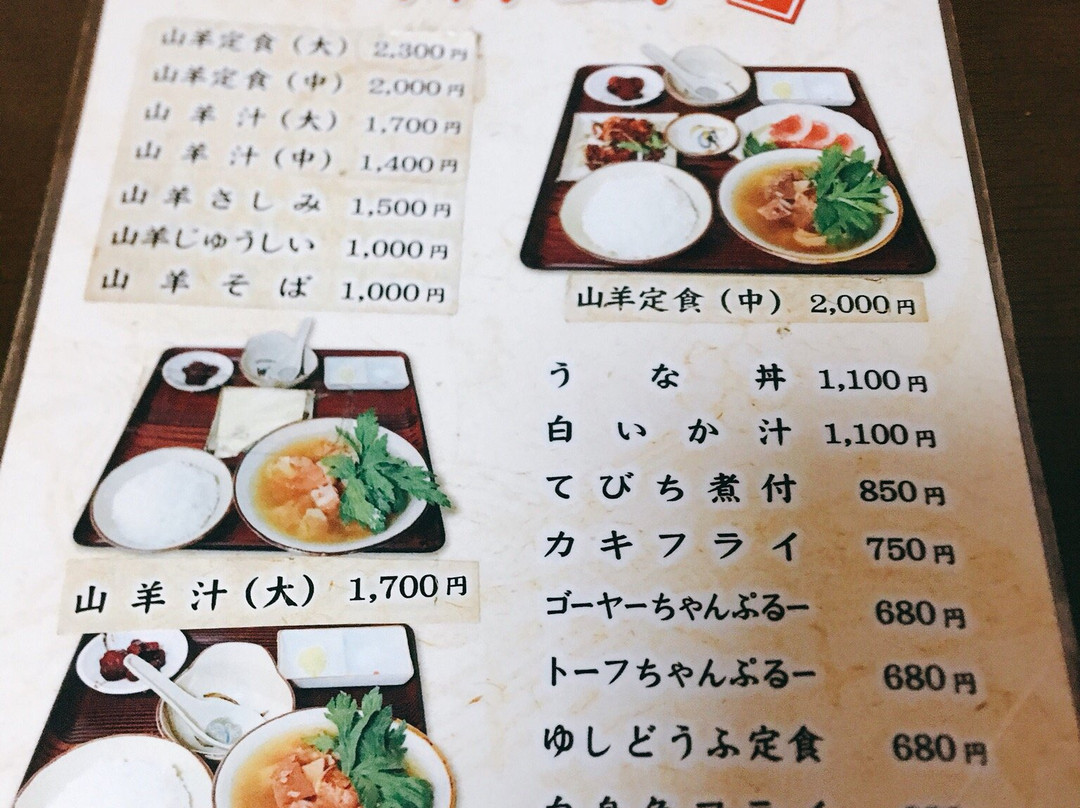 山羊定食（大） 2,300円
山羊定食（中） 2,000円
山羊汁（大） 1,700円
山羊汁（中） 1,400円
山羊さしみ 1,500円
山羊じゅうしい 1,000円
山羊そば 1,000円
山羊定食（中） 2,000円
山羊汁（大） 1,700円
うな丼 1,100円
白いか汁 1,100円
てびち煮付 850円
カキフライ 750円
ゴーヤーちゃんぷるー 680円
トーフちゃんぷるー 680円
ゆしどうふ定食 680円